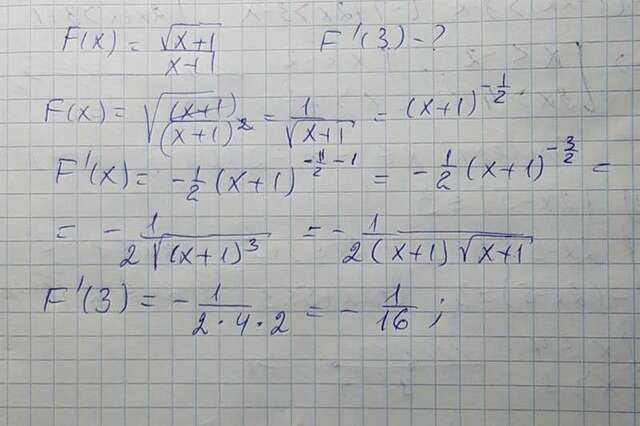 F(x) = √(x+1) / (x+1) F'(3) - ?
F(x) = √((x+1) / (x+1)²) = 1 / √(x+1) = (x+1)^(-1/2).
F'(x) = -1/2 (x+1)^(-1/2 - 1) = -1/2 (x+1)^(-3/2) =
= - 1 / (2√((x+1)³)) = - 1 / (2(x+1)√(x+1))
F'(3) = - 1 / (2·4·2) = - 1/16 ;